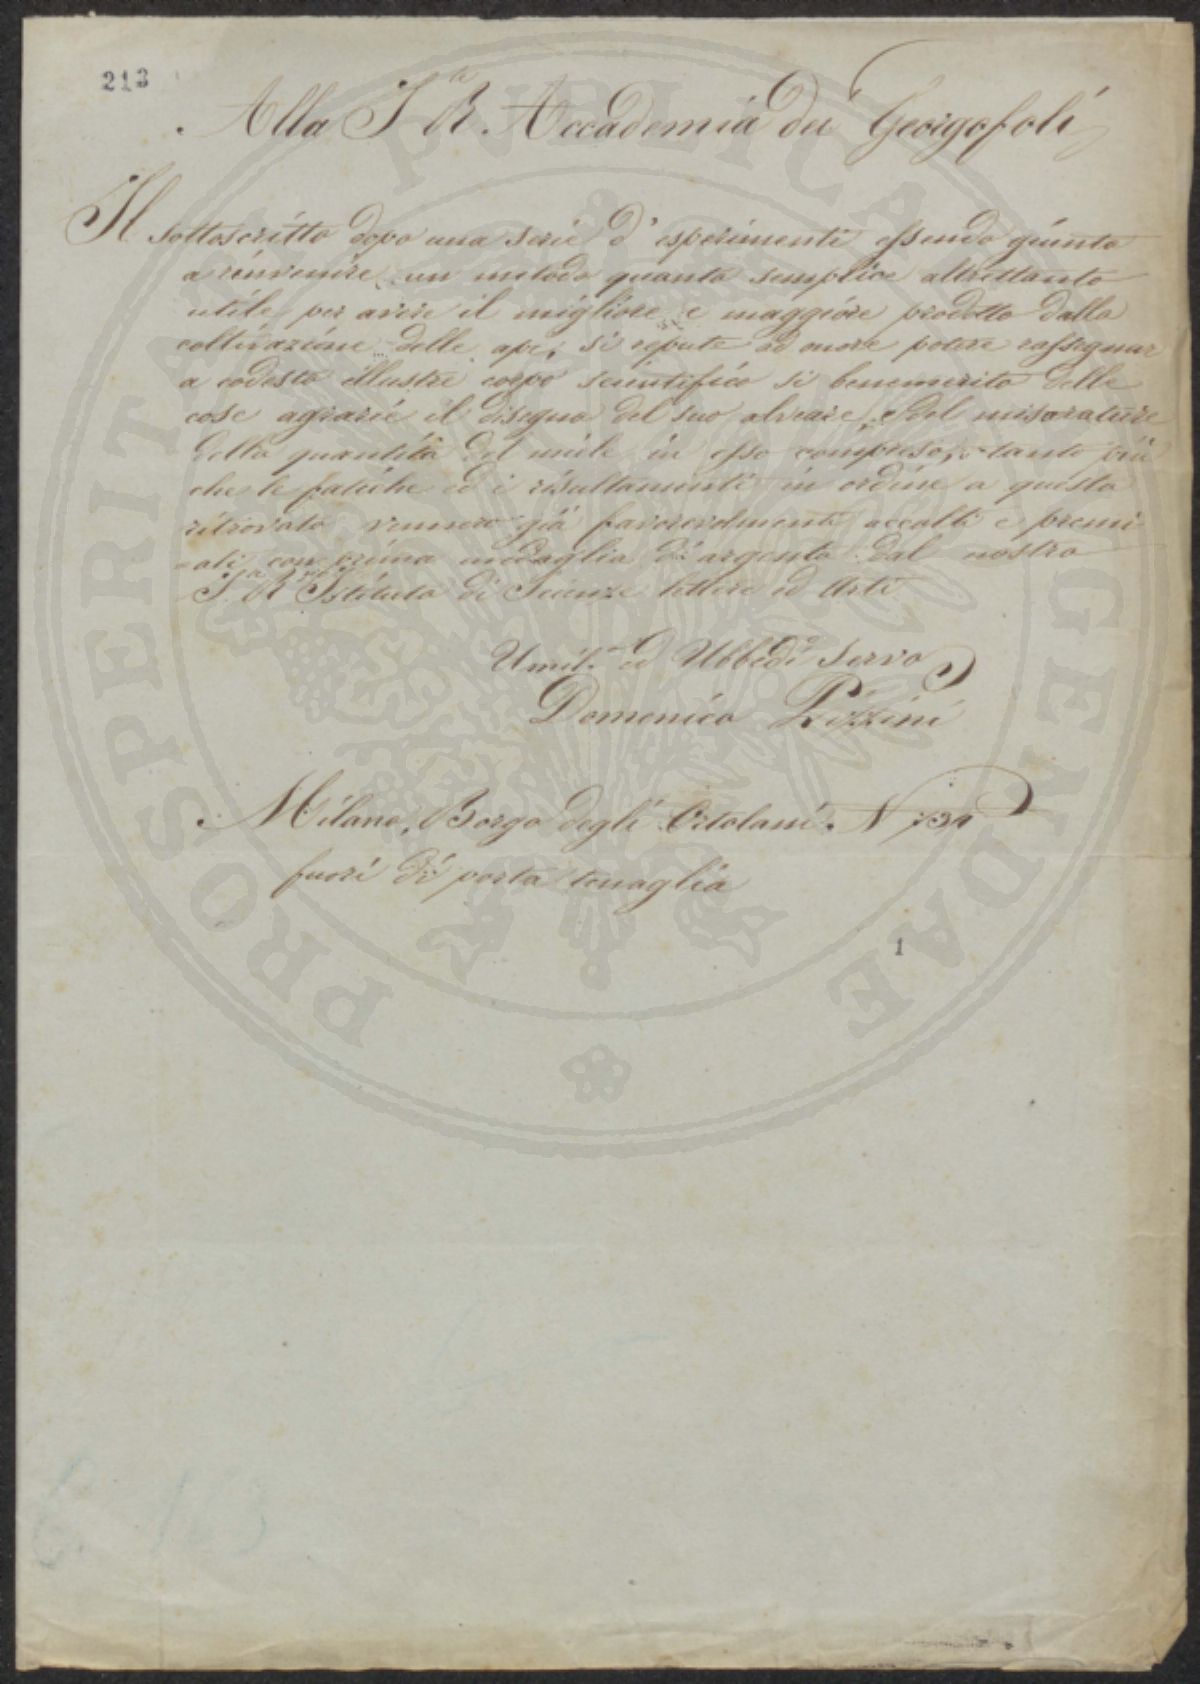 213
Alla I. R.a Accademia dei Georgofoli
Il sottoscritto dopo una serie d'esperimenti essendo giunto
a rinvenire un metodo quanto semplice altrettanto
utile per avere il migliore e maggiore prodotto dalla
coltivazione delle api; si repute ad onore potere rassegnar
a codesto illustre corpo scientifico si benemerito delle
cose agrarie il disegno del suo alveare, e del misuratore
della quantità del miele in esso compreso, tanto più
che le fatiche ed i risultamenti in ordine a questo
ritrovato vennero già favorevolmente accolti e premi
-ati con prima medaglia di argento dal nostro
I. R. Istituto di Scienze lettere ed Arti
Umil.o ed Ubbedi.o Servo
Domenico Pizzini
Milano, Borgo degli Ortolani. N
fuori di porta tenaglia
1
PROSPERITATI PVBLICAE AVGENDAE